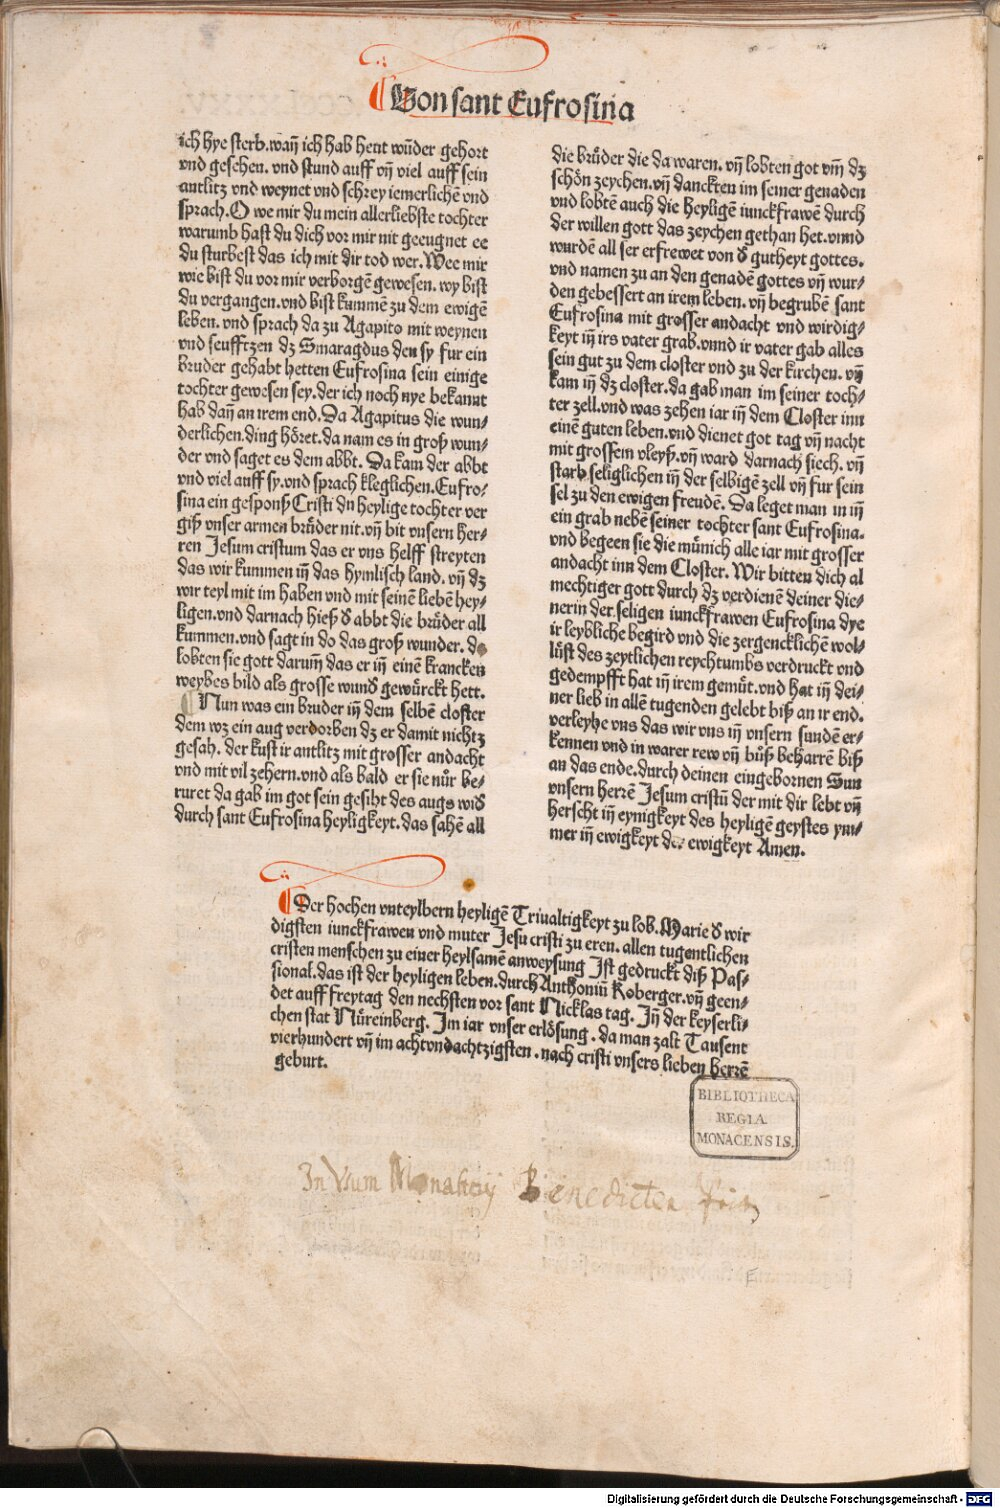 Von sant Eufrosina
ich hye sterb.wañ ich hab heut wũder gehort
vnd gesehen. vnd stund auff vñ viel auff sein
antlitz vnd weynet vnd schrey iemerlichẽ vnd
sprach.O we mir du mein allerliebste tochter
warumb hast du dich vor mir nit geeugnet ee
du sturbest das ich mit dir tod wer.Wee mir
wie bist du vor mir verborgẽ gewesen. wy bist
du vergangen.vnd bist kummẽ zu dem ewigẽ
leben. vnd sprach da zu Agapito mit weynen
vnd seufftzen dz Smaragdus den sy fur ein
bruder gehabt hetten Eufrosina sein einige
tochter gewesen sey.der ich noch nye bekannt
hab dañ an irem end.Da Agapitus die wun⸗
derlichen.ding höret.da nam es in groß wun⸗
der vnd saget es dem abbt. Da kam der abbt
vnd viel auff sy.vnd sprach kleglichen.Eufro⸗
sina ein gesponß Cristi du heylige tochter ver
giß vnser armen brůder nit.vñ bit vnsern her⸗
ren Jesum cristum das er vns helff streyten
das wir kummen iñ das hymlisch land. vñ dz
wir teyl mit im haben vnd mit seinẽ liebẽ hey⸗
ligen.vnd darnach hieß d̕ abbt die brůder all
kummen.vnd sagt in do das groß wunder. do
lobten sie gott darum̃ das er iñ einẽ krancken
weybes bild als grosse wund̕ gewürckt hett.
Nun was ein bruder iñ dem selbẽ closter
dem wz ein aug verdorben dz er damit nichtz
gesah. der kust ir antlitz mit grosser andacht
vnd mit vil zehern.vnd als bald er sie nůr be⸗
ruret da gab im got sein gesiht des augs wid̕
durch sant Eufrosina heyligkeyt.das sahẽ all
die brůder die da waren. vñ lobten got vm̃ dz
schön zeychen.vñ danckten im seiner genaden
vnd lobtẽ auch die heyligẽ iunckfrawẽ durch
der willen gott das zeychen gethan het.vnnd
wurdẽ all ser erfrewet von d̕ gutheyt gottes.
vnd namen zu an den genadẽ gottes vñ wur⸗
den gebessert an irem leben. vñ begrubẽ sant
Eufrosina mit grosser andacht vnd wirdig⸗
keyt iñ irs vater grab.vnnd ir vater gab alles
sein gut zu dem closter vnd zu der kirchen. vñ
kam iñ dz closter.da gab man im seiner toch⸗
ter zell.vnd was zehen iar iñ dem Closter inn
einẽ guten leben.vnd dienet got tag vñ nacht
mit grossem vleyß.vñ ward darnach siech. vñ
starb seliglichen iñ der selbigẽ zell vñ fur sein
sel zu den ewigen freudẽ. Da leget man in iñ
ein grab nebẽ seiner tochter sant Eufrosina.
vnd begeen sie die münich alle iar mit grosser
andacht inn dem Closter. Wir bitten dich al
mechtiger gott durch dz verdienẽ deiner die⸗
nerin der seligen iunckfrawen Eufrosina dye
ir leybliche begird vnd die zergencklichẽ wol⸗
lüst des zeytlichen reychtumbs verdruckt vnd
gedempfft hat iñ irem gemüt.vnd hat iñ dei⸗
ner lieb in allẽ tugenden gelebt biß an ir end.
verleyhe vns das wir vns iñ vnsern sundẽ er⸗
kennen vnd in warer rew vñ bůß beharrẽ biß
an das ende.durch deinen eingebornen Sun
vnsern herrẽ Jesum cristũ der mit dir lebt vñ
herscht iñ eynigkeyt des heyligẽ geystes ym⸗
mer iñ ewigkeyt der ewigkeyt Amen.
Der hochen vnteylbern heyligẽ Triualtigkeyt zu lob.Marie d̕ wir
digsten iunckfrawen vnd muter Jesu cristi zu eren. allen tugentlichen
cristen menschen zu einer heylsamẽ anweysung Ist gedruckt diß Pas⸗
sional.das ist der heyligen leben.durch Anthoniũ Koberger.vñ geen⸗
det auff freytag den nechsten vor sant Nicklas tag. Iñ der keyserli⸗
chen stat Nüreinberg. Im iar vnser erlösung . da man zalt Tausent
vierhundert vñ im achtvndachtzigsten . nach cristi vnsers lieben herrẽ
geburt.
BIBLIOTHECA
REGIA
MONACENSIS.
In Vsum Benedicten
Digitalisierung gefördert durch die Deutsche Forschungsgemeinschaft - DFG